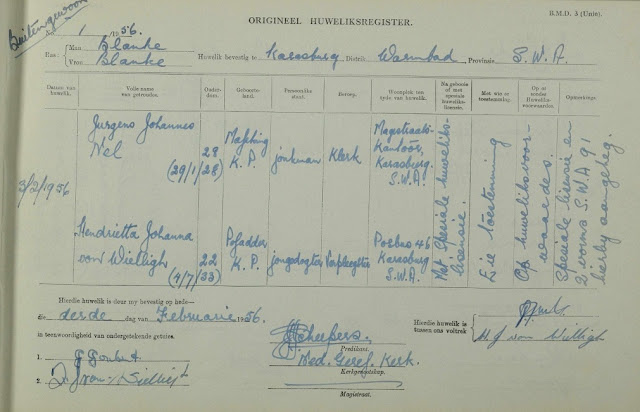 B.M.D. 3 (Univ).
ORIGINEEL HUWELIKSREGISTER.
Buitengewoon
No. 1 /1956.
Ras: Man Blanke
Vrou Blanke
Huwelik bevestig te Karasburg Distrik Warmbad, Provinsie S.W.A.
Datum van huwelik.
Volle name van getroudes.
Ouderdom.
Geboorteland.
Persoonlike staat.
Beroep.
Woonplek ten tyde van huwelik.
Na gebooie of met spesiale huwelikslisensie.
Met wie se toestemming.
Op of sonder Huweliksvoorwaardes.
Opmerkings
3/2/1956
Jurgens Johannes Nel (29/1/28)
29
Mafeking K.P.
jonkman
Klerk
Magistraatskantoor, Karasburg, S.W.A.
Hendrietta Johanna von Wielligh (4/7/33)
22
Pofadder K.P.
jongedogter
Verpleegster
Posbus 46 Karasburg S.W.A.
Met Spesiale huwelikslisensie.
Sie toestemming
Op huweliksvoorwaardes.
Spesiale lisensie en 2 vorms S.W.A 91 hierby aangeheg.
Hierdie huwelik is deur my bevestig op hede—
die derde dag van Februarie 1956.
in teenwoordigheid van ondergetekende getuies.
1. Joubert
2.
Scheepers.
Predikant.
Ned. Geref. Kerk.
Kerkgenootskap.
Magistraat.
Hierdie huwelik is tussen ons voltrek
H. J. von Wielligh